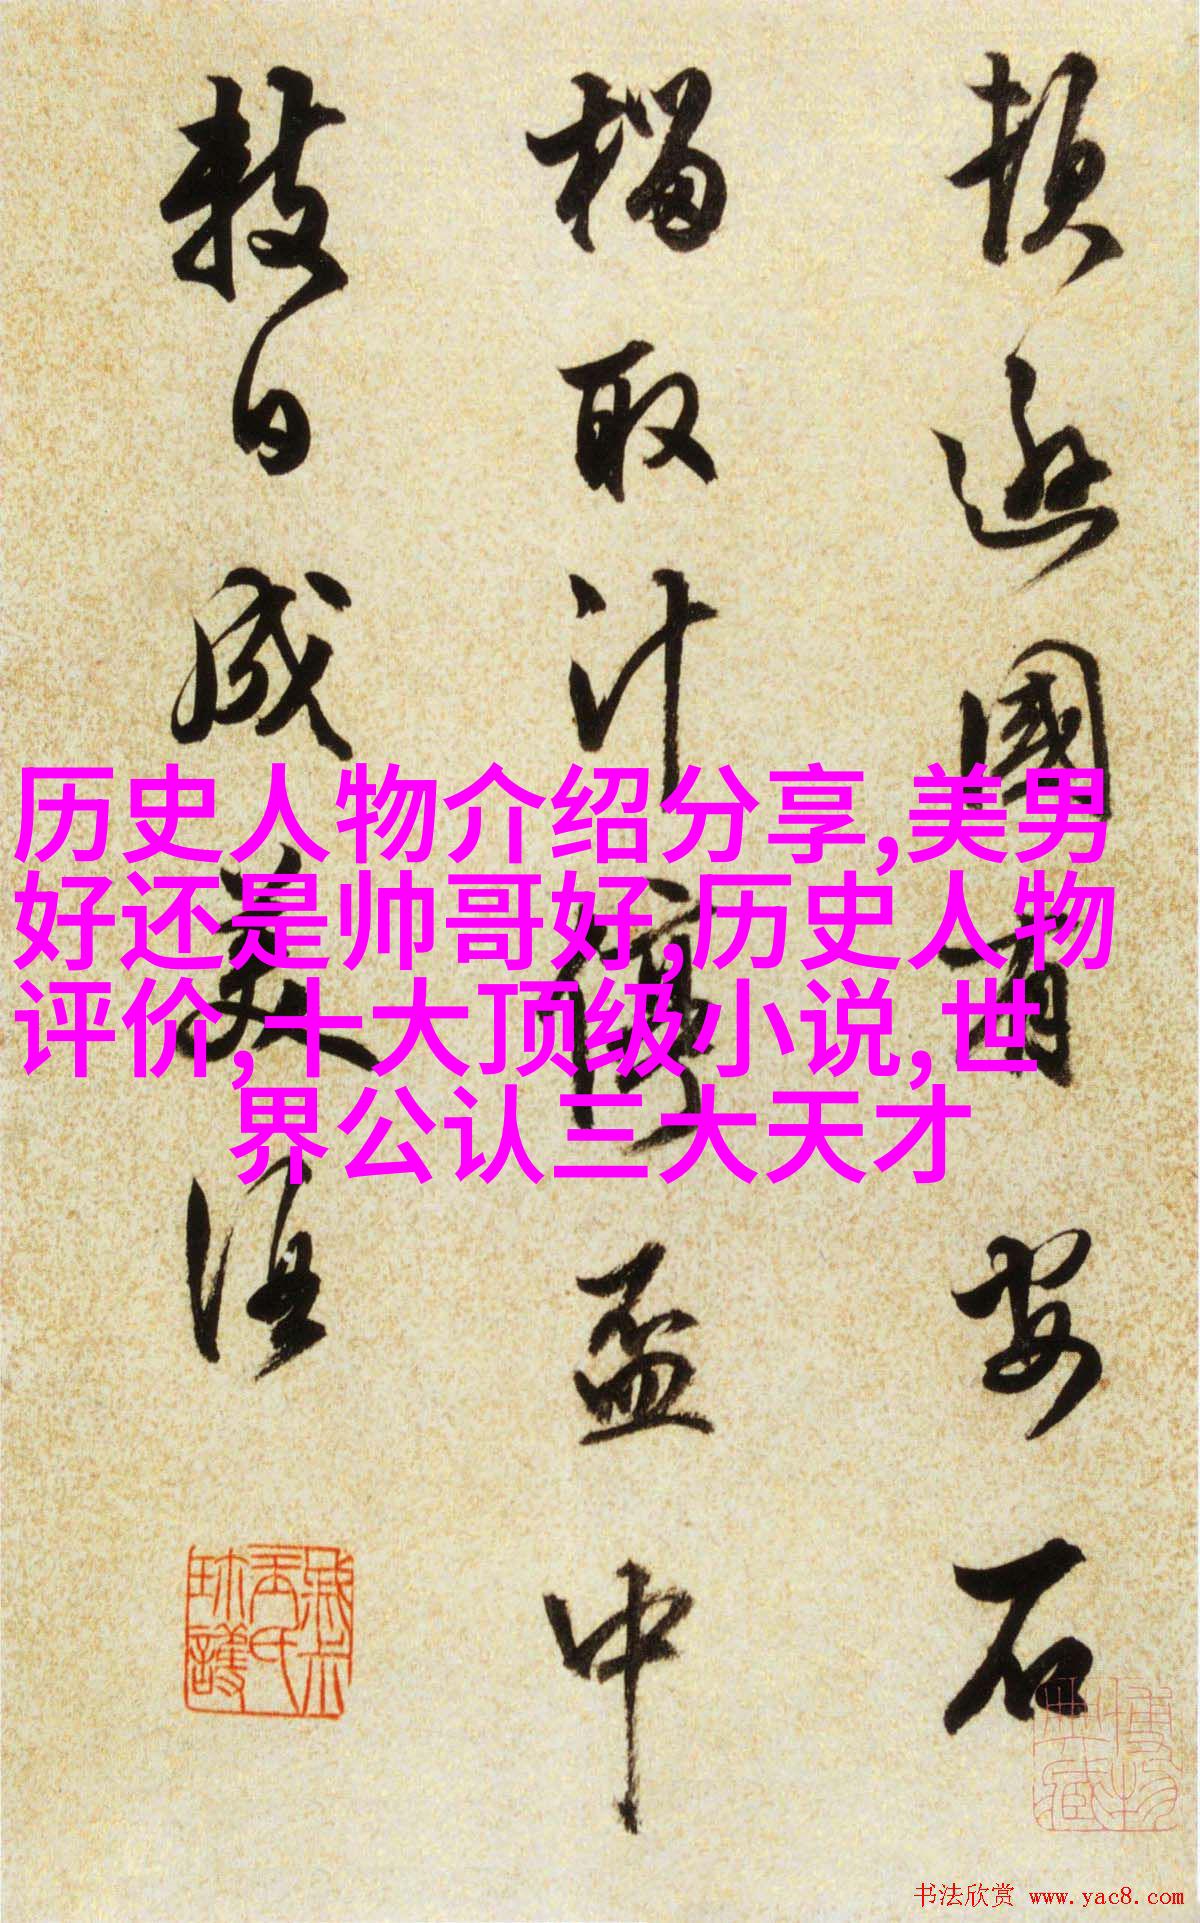 頓遜國有安石
榴取汁停盃中
數日成美酒
历史人物介绍分享,美男
好还是帅哥好,历史人物
评价,十大顶级小说,世
界公认三大天才
书法欣赏 www.yac8.com